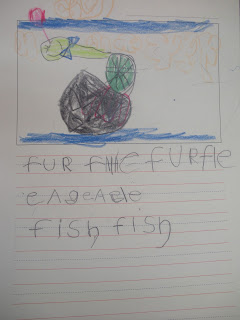 fUR fURfle
eAgeAble
fish fish